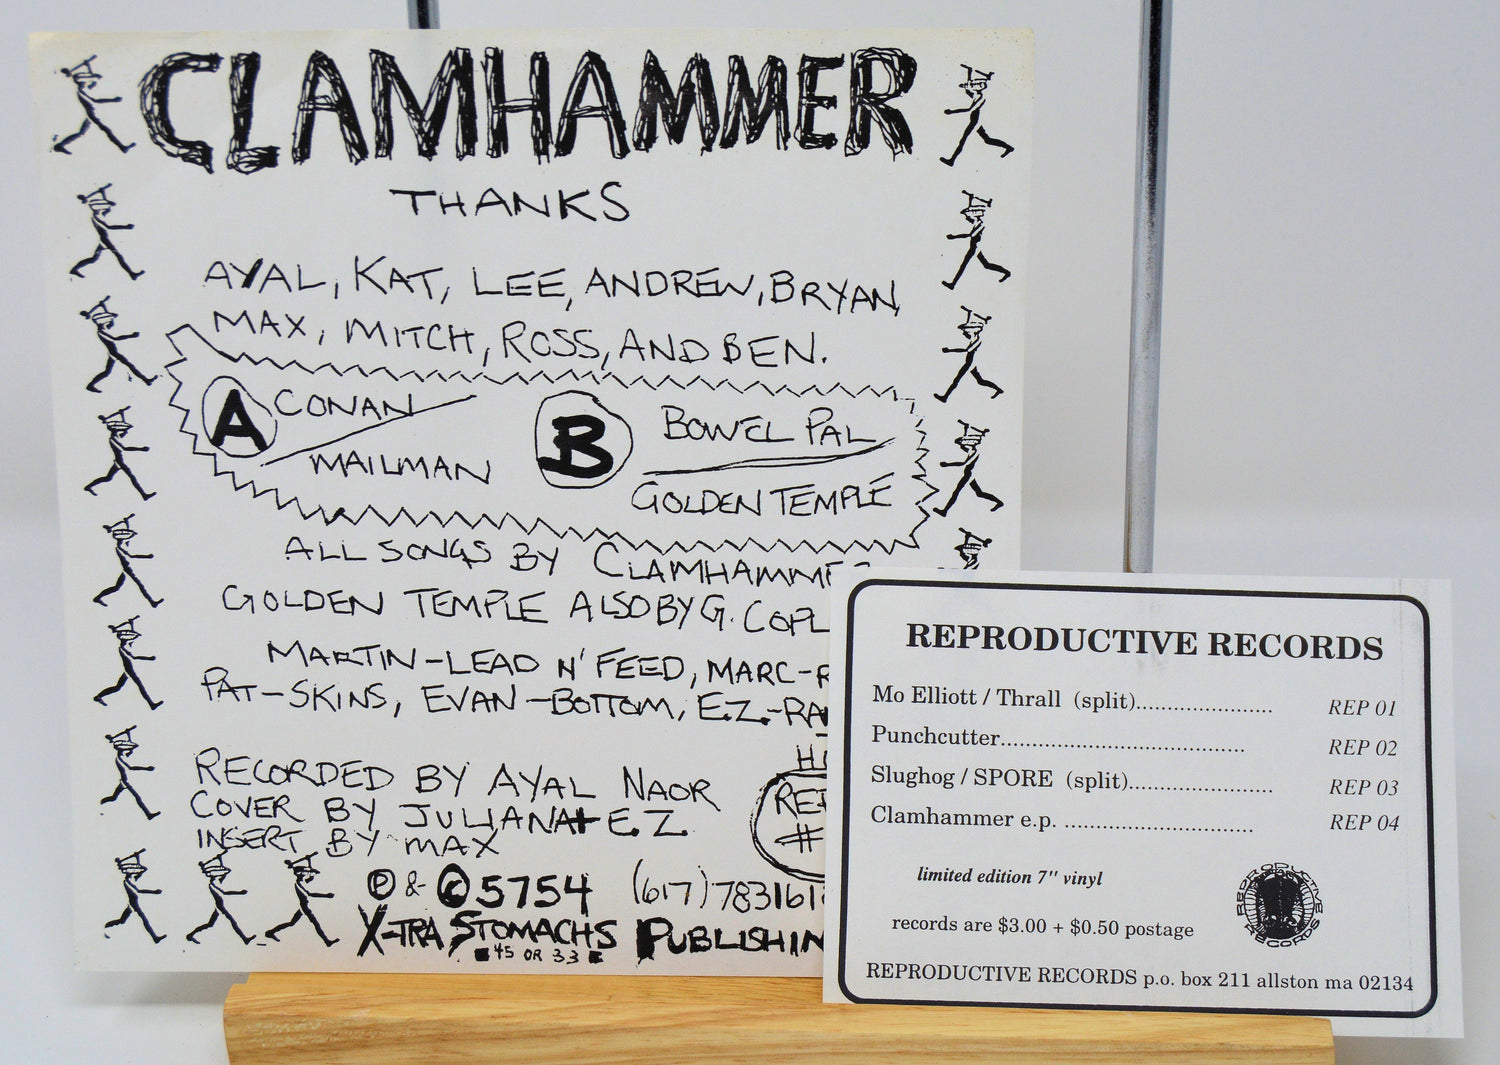 CLAMHAMMER
THANKS
AYAL, KAT, LEE, ANDREW, BRYAN,
MAX, MITCH, ROSS, AND BEN.
A CONAN
MAILMAN
B BOWEL PAL
GOLDEN TEMPLE
ALL SONGS BY CLAMHAMME
GOLDEN TEMPLE ALSO BY G. COPL
MARTIN-LEAD N' FEED, MARC-R
PAT-SKINS, EVAN-BOTTOM, E.Z.-RA
RECORDED BY AYAL NAOR
COVER BY JULIANA + E.Z.
INSERT BY MAX
REP
#
Ⓟ & © 5754 (617) 783161
X-TRA STOMACHS PUBLISHIN
45 OR 33
REPRODUCTIVE RECORDS
Mo Elliott / Thrall (split)...................... REP 01
Punchcutter....................................... REP 02
Slughog / SPORE (split)....................... REP 03
Clamhammer e.p. .............................. REP 04
limited edition 7" vinyl
records are $3.00 + $0.50 postage
REPRODUCTIVE RECORDS
REPRODUCTIVE RECORDS p.o. box 211 allston ma 02134